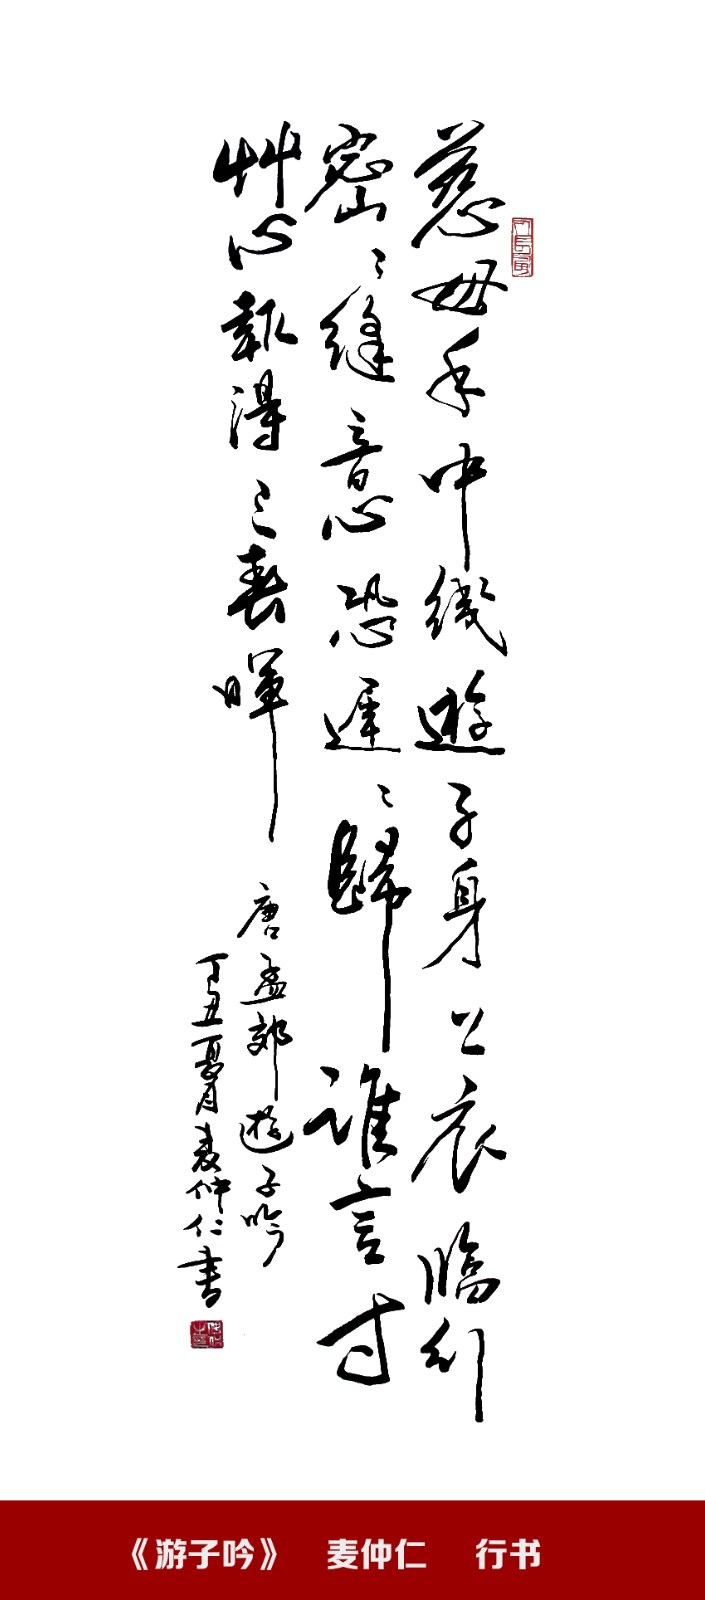 慈母手中线遊子身上衣臨行
密密縫意恐遲遲歸誰言寸
艸心報得三春暉
唐孟郊遊子吟
丁丑夏月麦仲仁书
《游子吟》 麦仲仁 行书